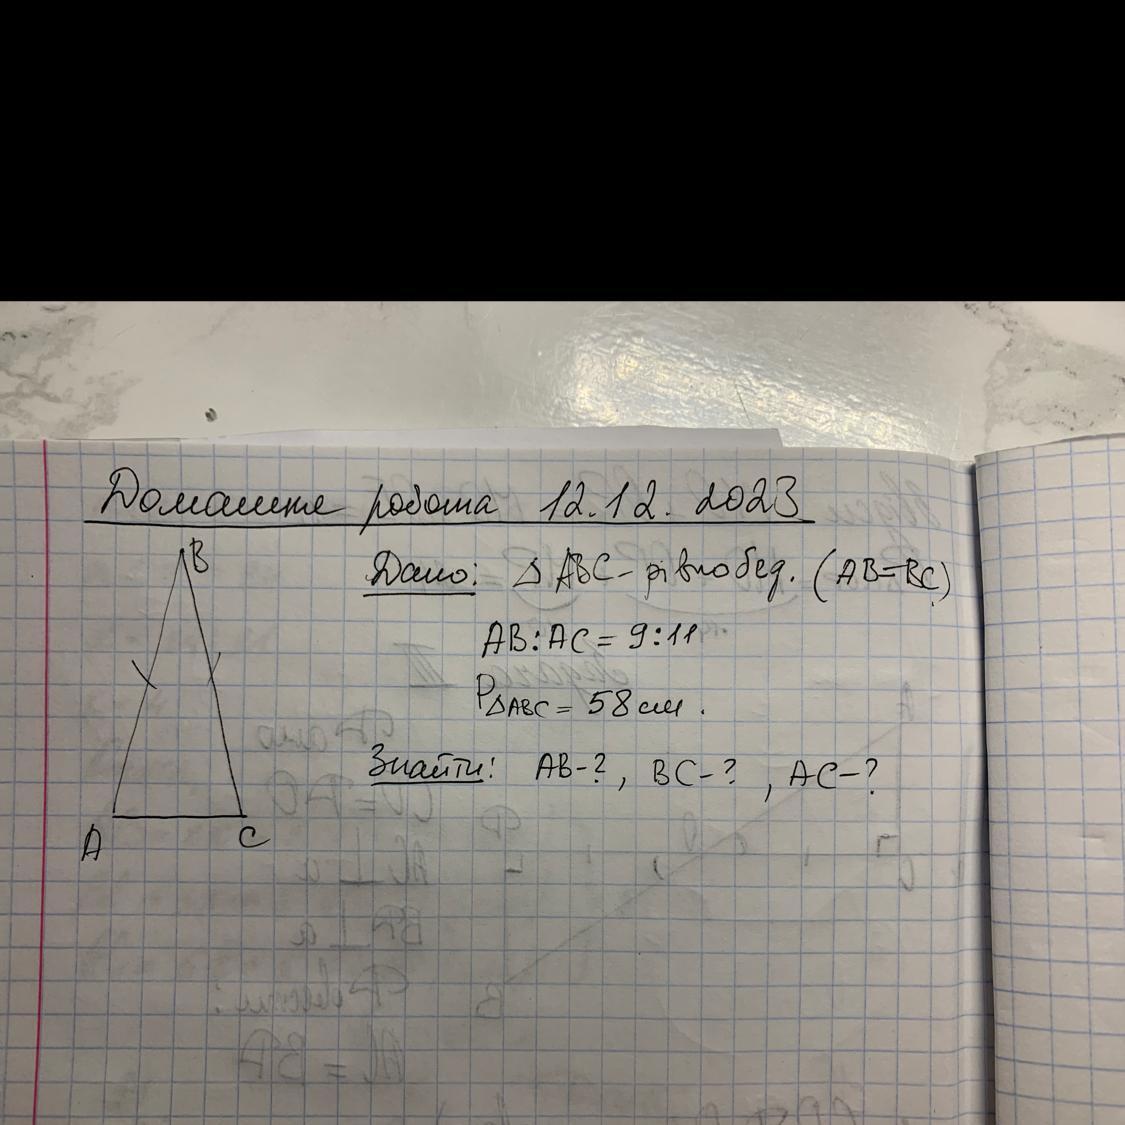 Домашня робота 12.12.2023
B
Дано: Δ ABC - рівнобед. (AB=BC)
AB:AC = 9:11
PΔABC = 58 см.
Знайти: AB-?, BC-?, AC-?
A
C